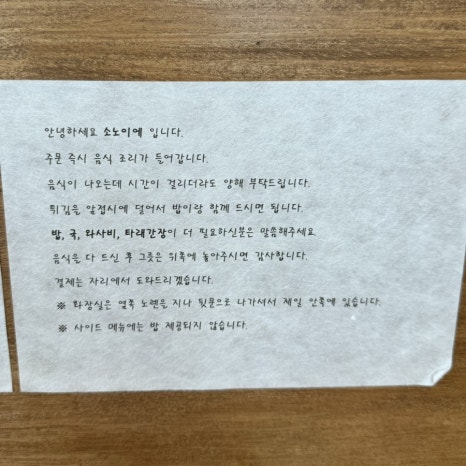 안녕하세요 소노이에 입니다.
주문 즉시 음식 조리가 들어갑니다.
음식이 나오는데 시간이 걸리더라도 양해 부탁드립니다.
튀김을 앞접시에 덜어서 밥이랑 함께 드시면 됩니다.
밥, 국, 와사비, 타래간장이 더 필요하신분은 말씀해주세요.
음식을 다 드신 후 그릇은 위쪽에 놓아주시면 감사합니다.
결제는 자리에서 도와드리겠습니다.
※ 화장실은 옆쪽 노렌을 지나 뒷문으로 나가셔서 제일 안쪽에 있습니다.
※ 사이드 메뉴에는 밥 제공되지 않습니다.